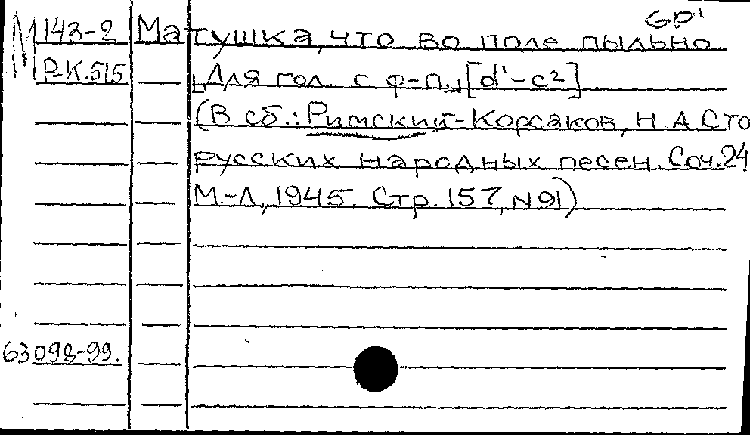 М 143-2 Матушка, что во поле пыльно
Р-К.515 Для гол. с ф-п. [d¹-c²]
(В сб.: Римский-Корсаков, Н.А. Сто
русских народных песен. Соч.24
М-Л, 1945. Стр. 157, N91)
63098-99.